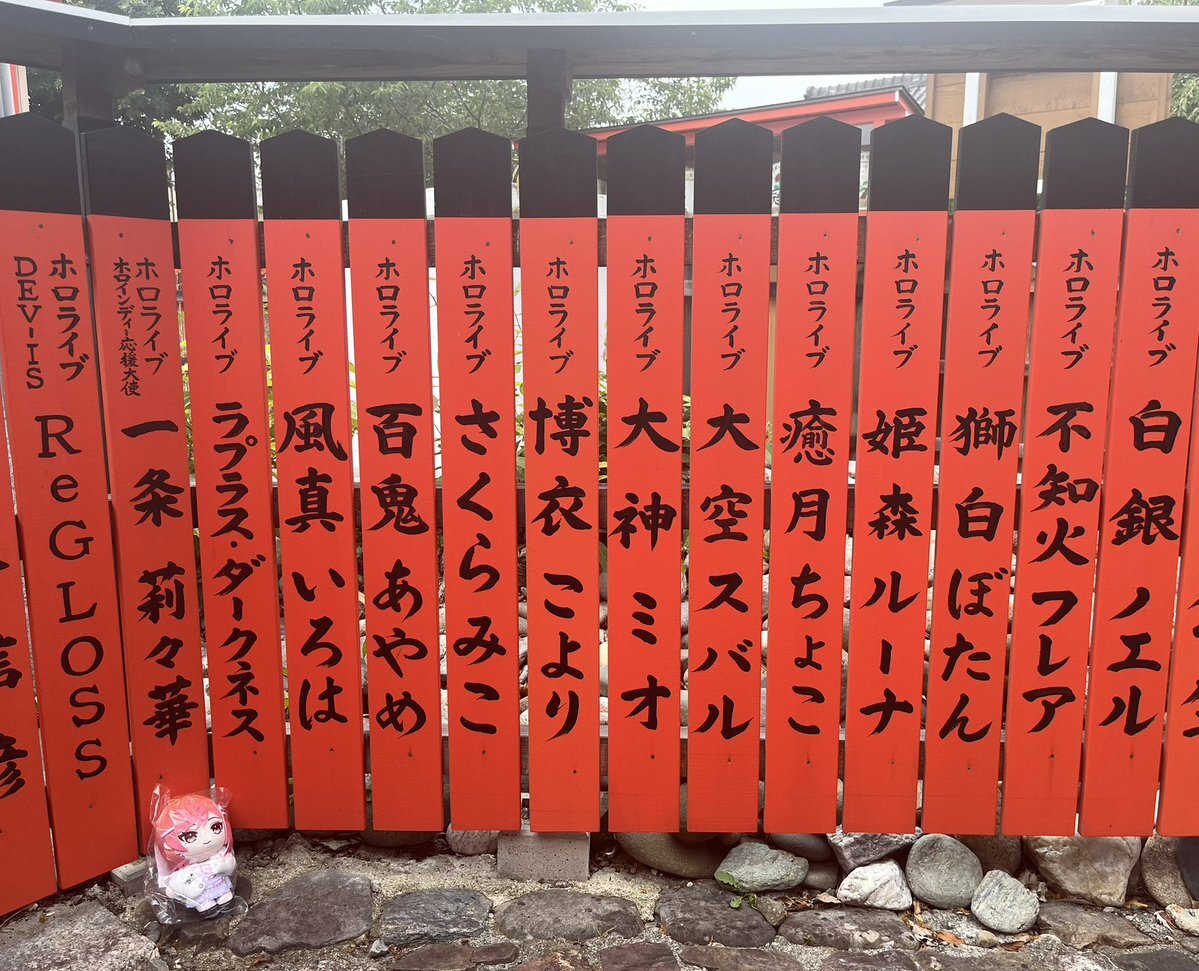 ホロライブ
白銀ノエル
ホロライブ
不知火フレア
ホロライブ
獅白ぼたん
ホロライブ
姫森ルーナ
ホロライブ
癒月ちょこ
ホロライブ
大空スバル
ホロライブ
大神ミオ
ホロライブ
博衣こより
ホロライブ
さくらみこ
ホロライブ
百鬼あやめ
ホロライブ
風真いろは
ホロライブ
ラプラス・ダークネス
ホロライブ
ホロインディ応援大使
一条莉々華
ホロライブ
DEV-IS
ReGLOSS